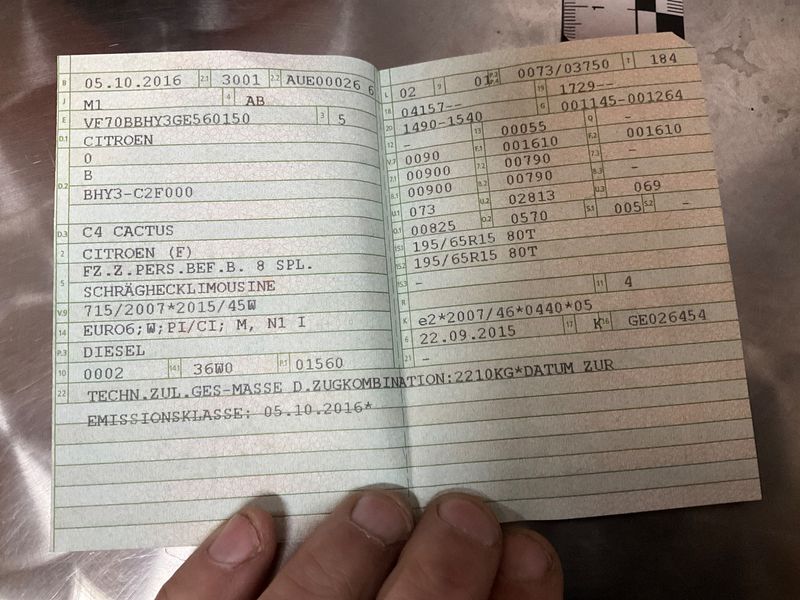 B 05.10.2016 2.1 3001 2.2 AUE00026 6
J M1 4 AB
E VF70BBHY3GE560150 3 5
D.1 CITROEN
0
B
D.2 BHY3-C2F000
D.3 C4 CACTUS
2 CITROEN (F)
5 FZ.Z.PERS.BEF.B. 8 SPL.
SCHRÄGHECKLIMOUSINE
V.9 715/2007*2015/45W
14 EURO6;W;PI/CI; M, N1 I
P.3 DIESEL
10 0002 14.1 36W0 P.1 01560
22 TECHN.ZUL.GES-MASSE D.ZUGKOMBINATION:2210KG*DATUM ZUR
EMISSIONSKLASSE: 05.10.2016*
L 02 9 01 P.2 P.4 0073/03750 T 184
18 04157-- 19 1729--
20 1490-1540 G 001145-001264
12 - 13 00055 Q -
V.7 0090 F.1 001610 F.2 001610
7.1 00900 7.2 00790 7.3 -
8.1 00900 8.2 00790 8.3 -
U.1 073 U.2 02813 U.3 069
O.1 00825 O.2 0570 S.1 005 S.2 -
15.1 195/65R15 80T
15.2 195/65R15 80T
15.3 -
R 11 4
K e2*2007/46*0440*05
6 22.09.2015 17 K 16 GE026454
21 -